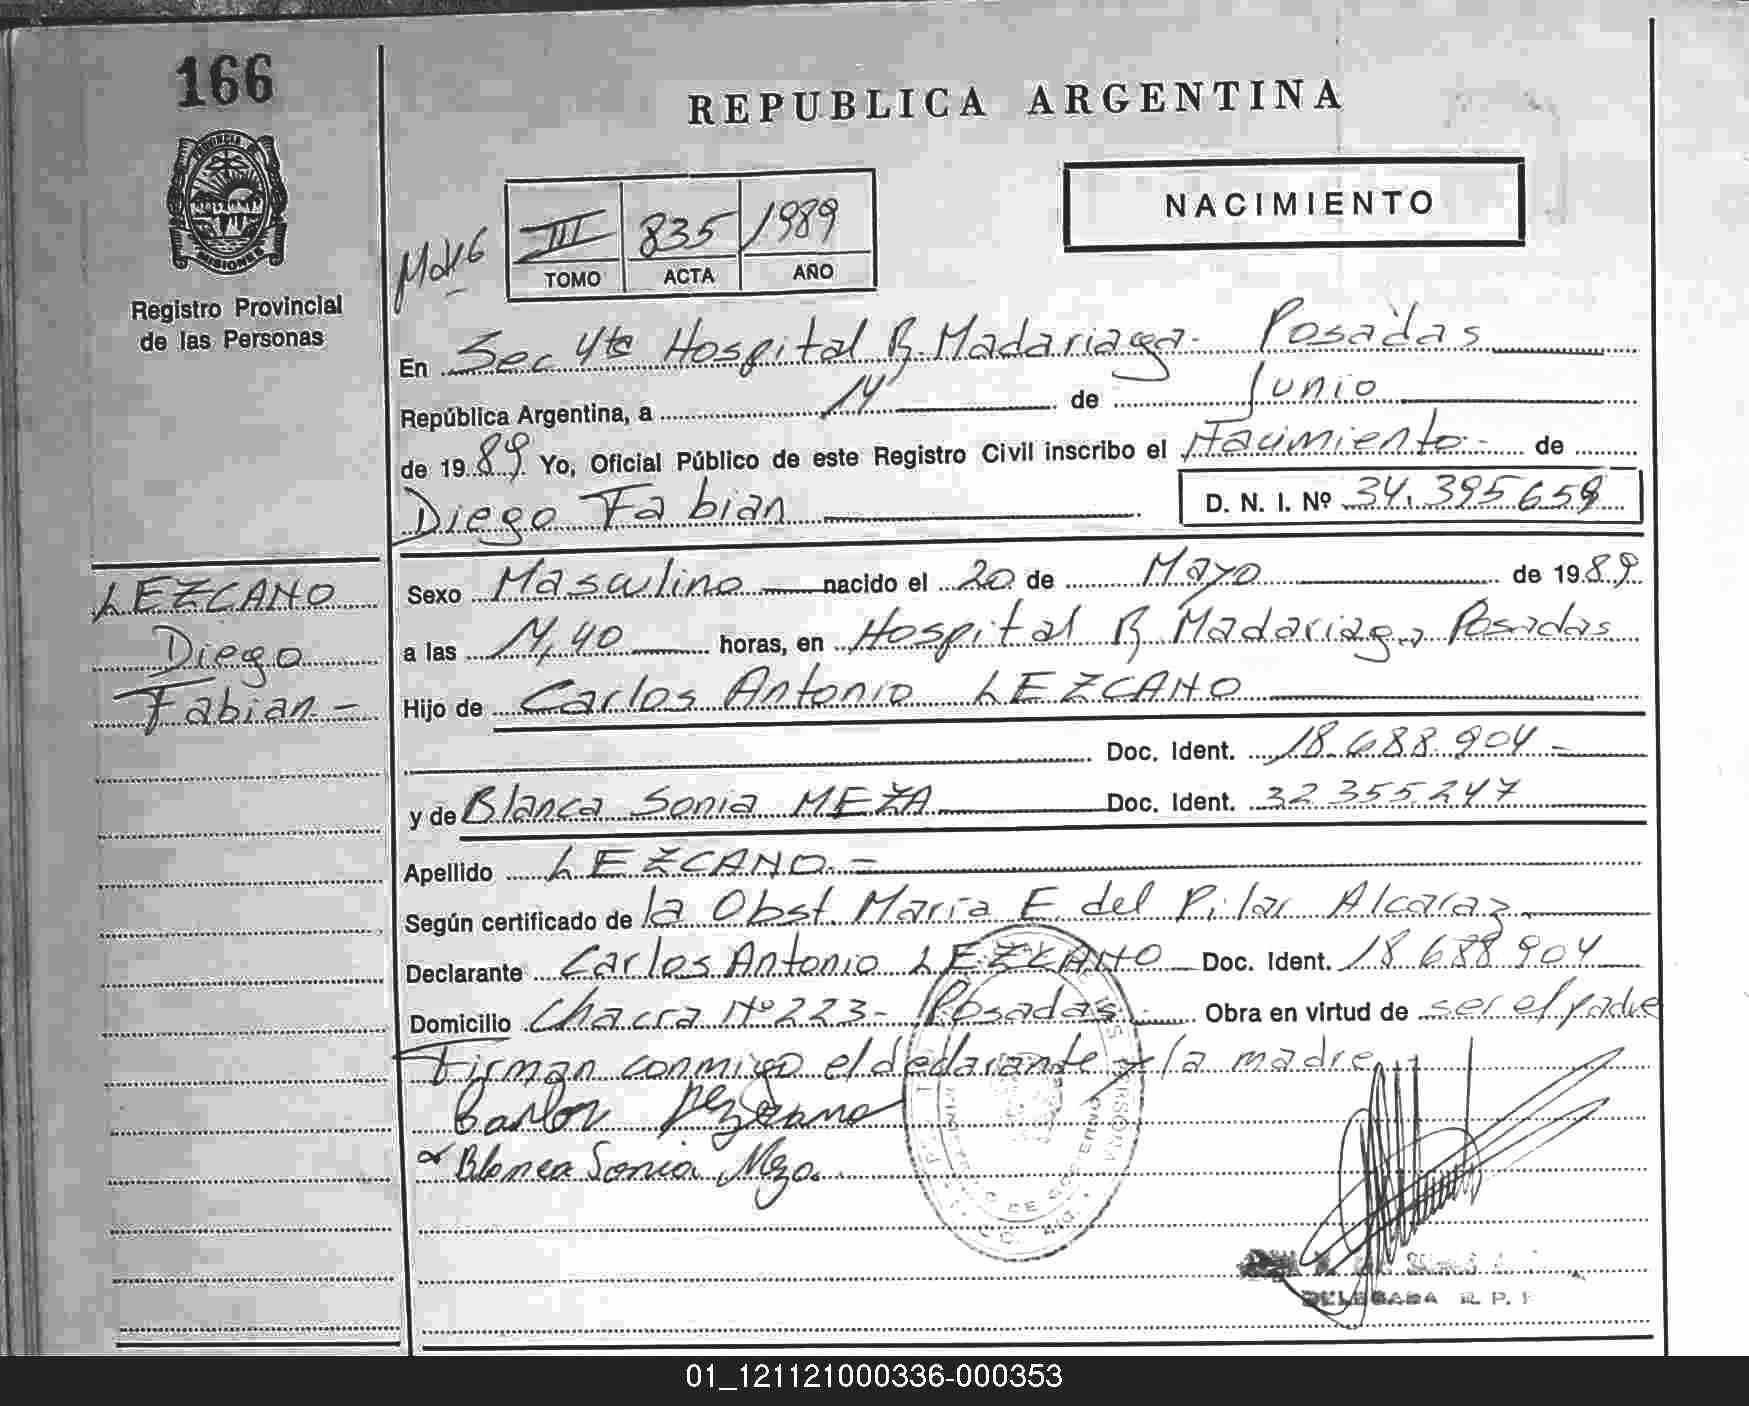 166
REPUBLICA ARGENTINA
PROVINCIA
MISIONES
Registro Provincial
de las Personas
NACIMIENTO
III 835 1989
TOMO ACTA AÑO
En Sec 4ta Hospital R. Madariaga - Posadas
República Argentina, a 14 de Junio
de 1989. Yo, Oficial Público de este Registro Civil inscribo el Nacimiento - de
Diego Fabian
D. N. I. Nº 34.395.659
LEZCANO
Diego
Fabian -
Sexo Masculino nacido el 20 de Mayo de 1989.
a las 11,40 horas, en Hospital R. Madariaga, Posadas
Hijo de Carlos Antonio LEZCANO
Doc. Ident. 18.688.904 -
y de Blanca Sonia MEZA Doc. Ident. 32.355.247
Apellido LEZCANO. -
Según certificado de la Obst. Maria E. del Pilar Alcaraz
Declarante Carlos Antonio LEZCANO Doc. Ident. 18.688.904
Domicilio Chacra Nº 223 - Posadas - Obra en virtud de ser el padre
Firman conmigo el declarante y la madre
Carlos Lezcano
Blanca Sonia Meza.
DELEGADA R. P.
01_121121000336-000353